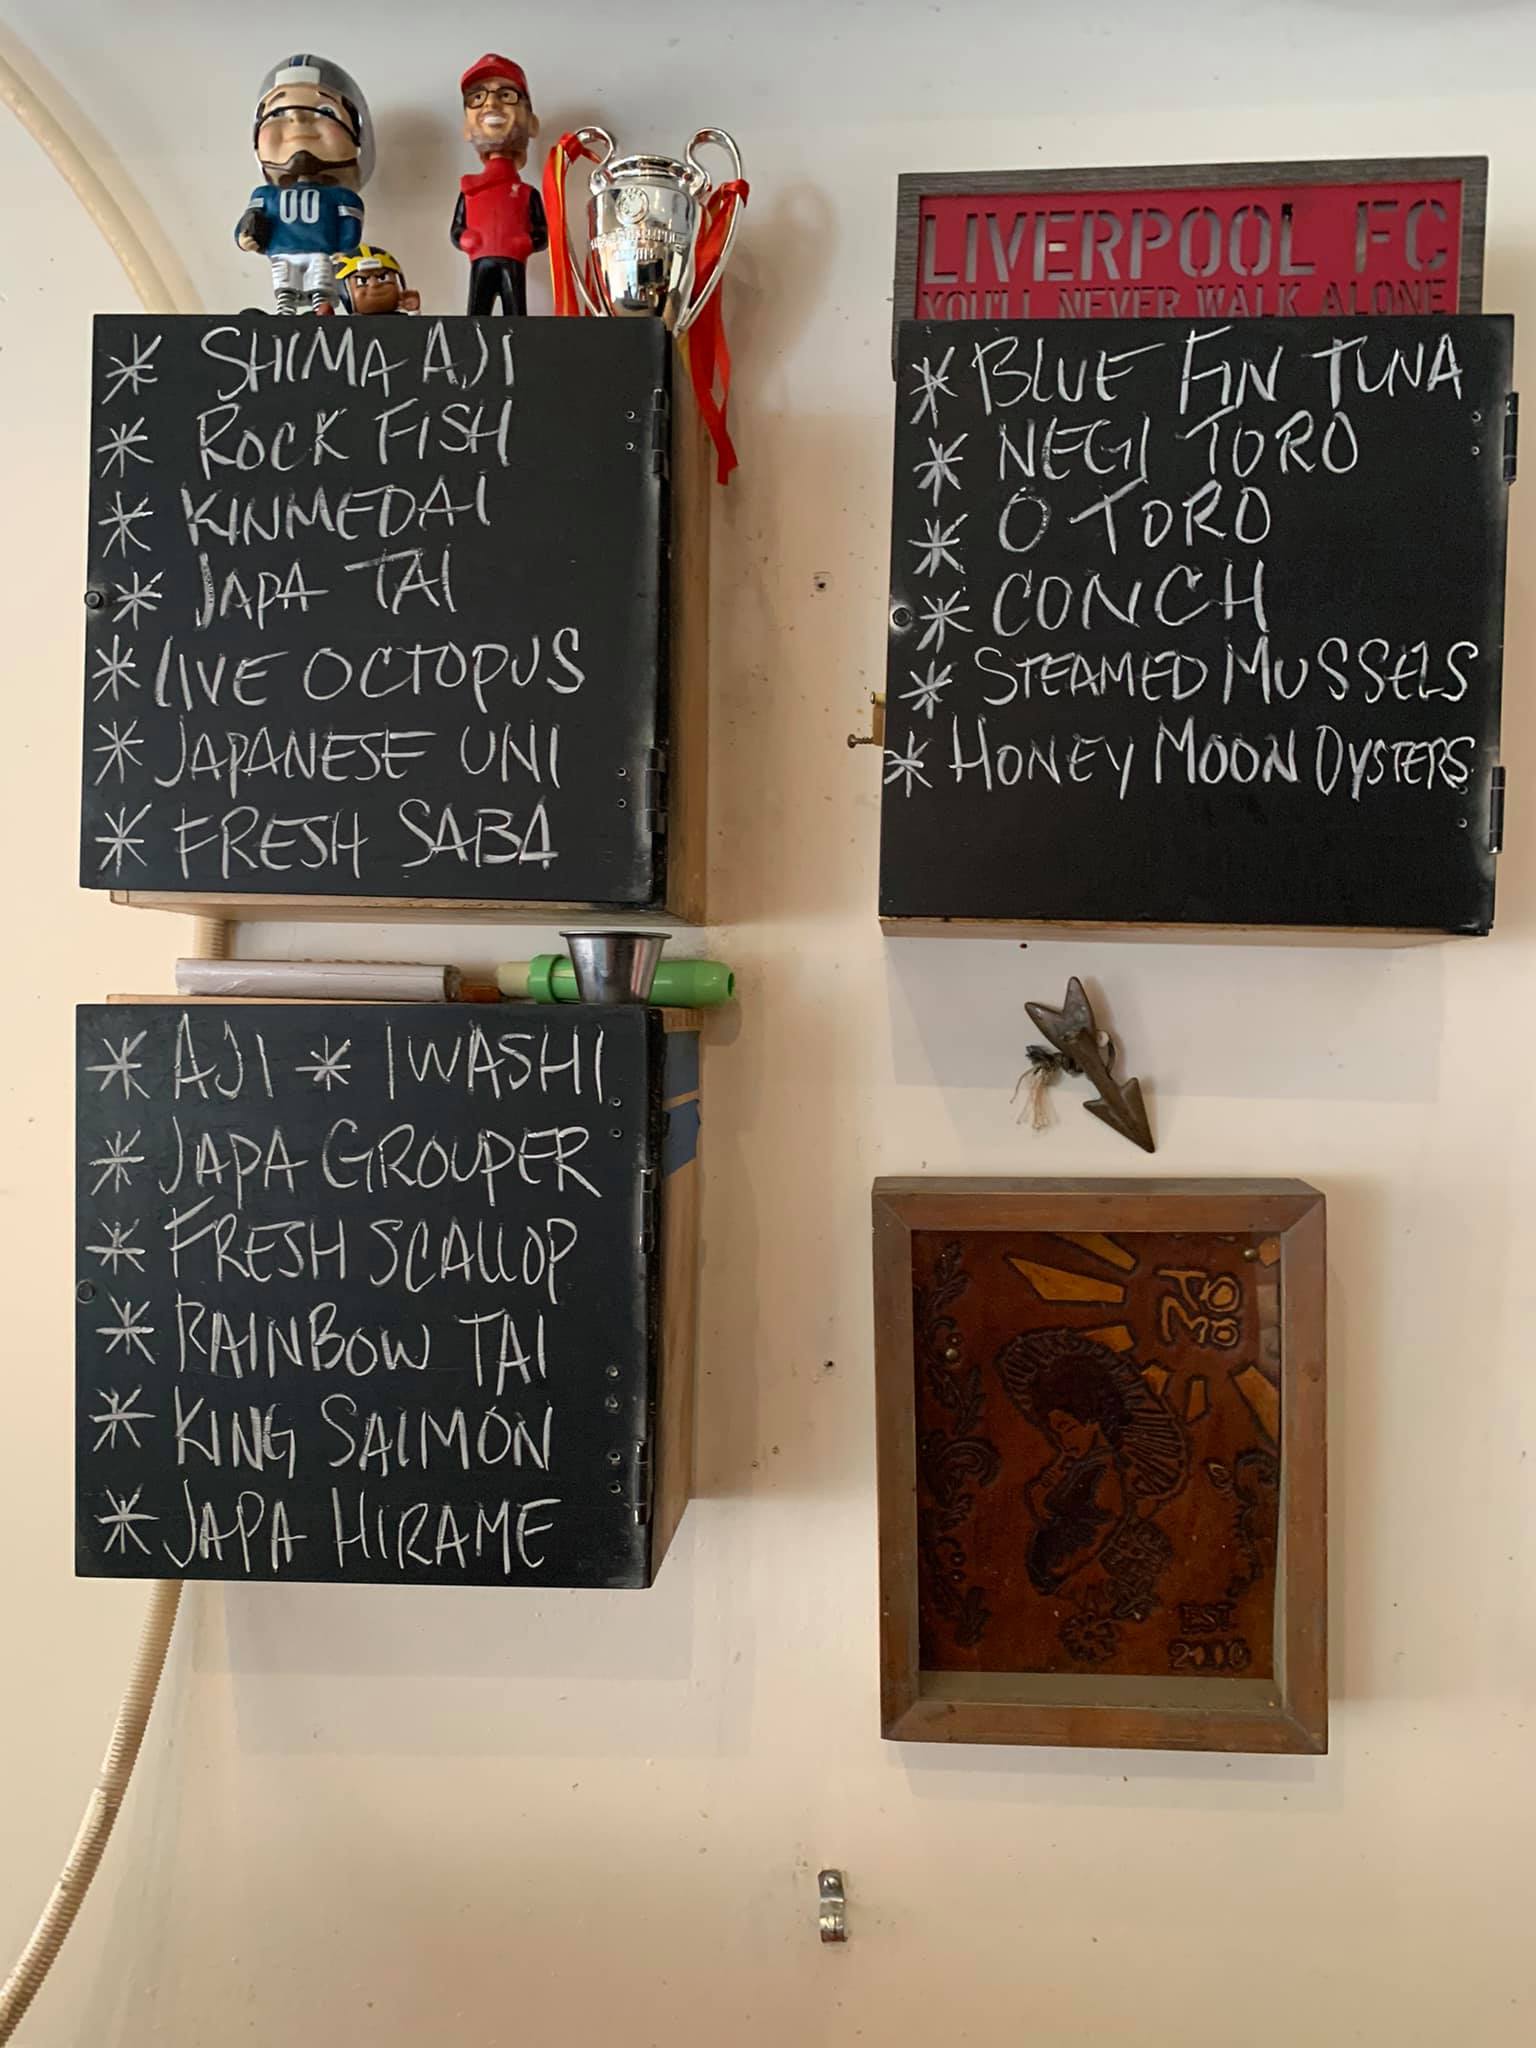 00
LIVERPOOL FC
YOU'LL NEVER WALK ALONE
* SHIMA AJI
* ROCK FISH
* KINMEDAI
* JAPA TAI
* LIVE OCTOPUS
* JAPANESE UNI
* FRESH SABA
* BLUE FIN TUNA
* NEGI TORO
* O TORO
* CONCH
* STEAMED MUSSELS
* HONEY MOON OYSTERS
* AJI * IWASHI
* JAPA GROUPER
* FRESH SCALLOP
* RAINBOW TAI
* KING SALMON
* JAPA HIRAME
EST